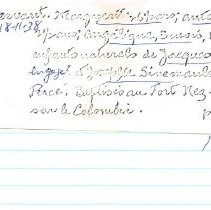 servant. Marguerite, 6 ans; Antoi
18-11-38
4 ans; Angélique, 3 mois,
enfants naturels de Jacques
engagé et Josette Sinemault
Percé. Baptisés au Fort Nez-
sur le Colombia.